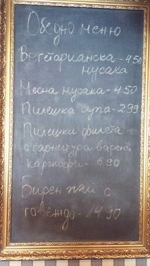 Обедно меню
Вегетарианска - 4.50
мусака
Месна мусака - 4.50
Пилешка супа - 2.99
Пилешки филета
с гарнитура варени
картофи - 6.90
Бирен пай с
говеждо - 14.90